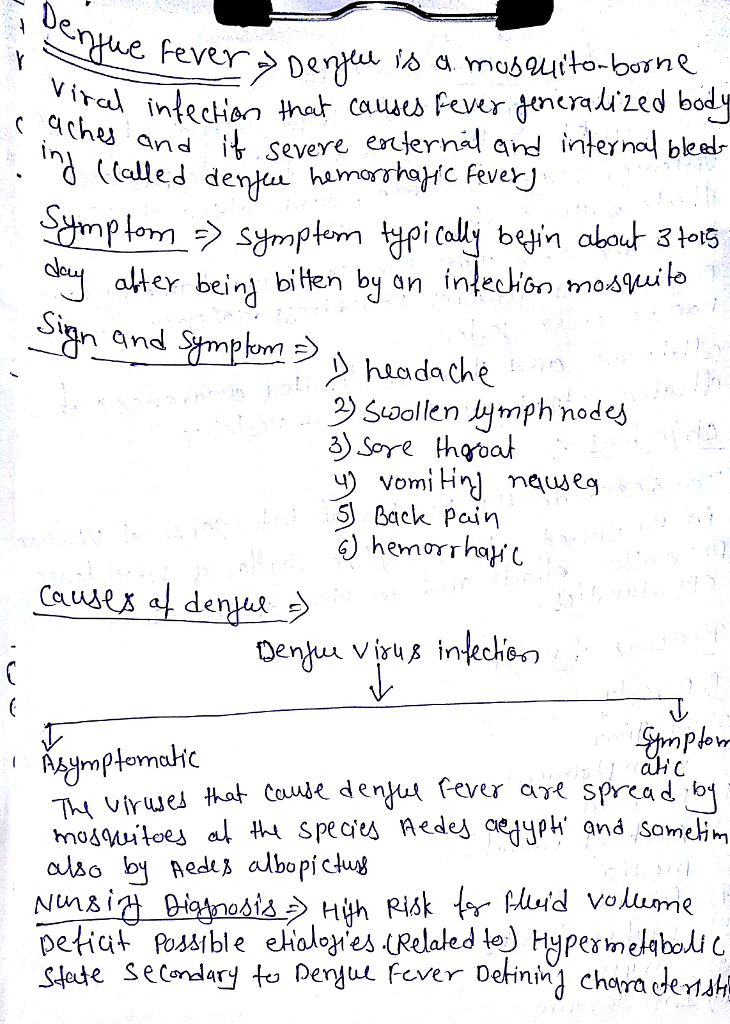 Dengue Fever ⇒ Dengue is a mosquito-borne
Viral infection that causes fever generalized body
aches and if severe external and internal bleed-
ing (called dengue hemorrhagic fever)
Symptom ⇒ symptom typically begin about 3 to 15
day after being bitten by an infection mosquito
Sign and Symptom ⇒
1) headache
2) Swollen lymph nodes
3) Sore throat
4) vomiting nausea
5) Back pain
6) hemorrhagic
Causes of dengue ⇒
Dengue virus infection
Asymptomatic
Symptom
atic
The viruses that cause dengue fever are spread by
mosquitoes of the species Aedes aegypti and sometim
also by Aedes albopictus
Nursing Diagnosis ⇒ High Risk for fluid volume
Deficit Possible etialogies (Related to) Hypermetabolic
State Secondary to Dengue Fever Defining characterist